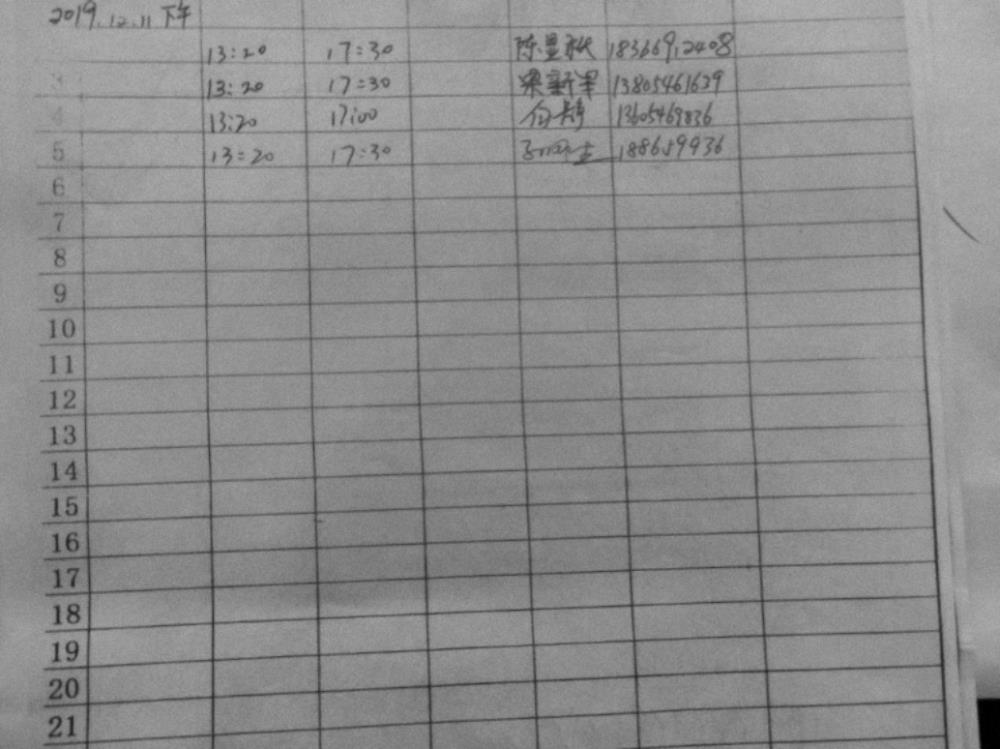 2019.12.11 下午
13:20 17:30 陈显秋 18366912408
3 13:20 17:30 梁新军 13805461639
4 13:20 17:00 13605469836
5 13:20 17:30 188659936
6
7
8
9
10
11
12
13
14
15
16
17
18
19
20
21